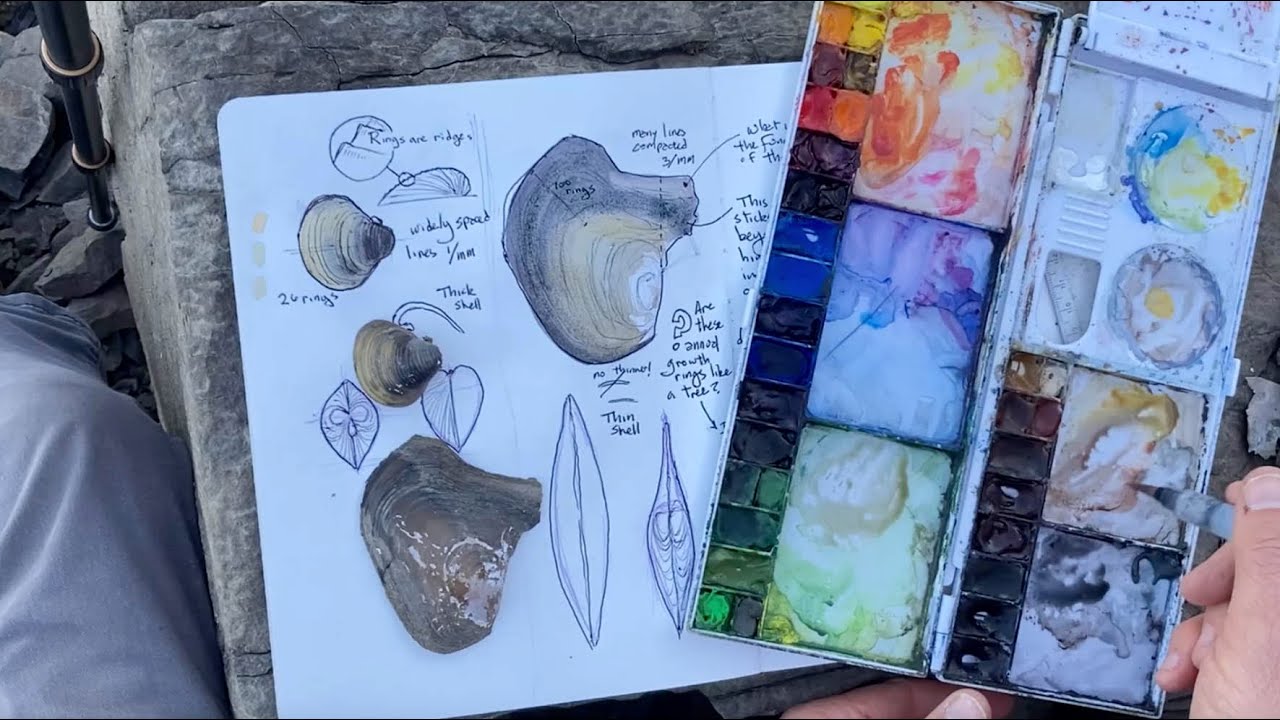 Rings are ridges
widely spaced
lines 1/mm
26 rings
Thick
shell
many lines
compacted
3/mm
100
rings
what
the
of th
This
sticks
in
? Are
these
annual
growth
rings like
a tree?
no thinner!
Thin
shell